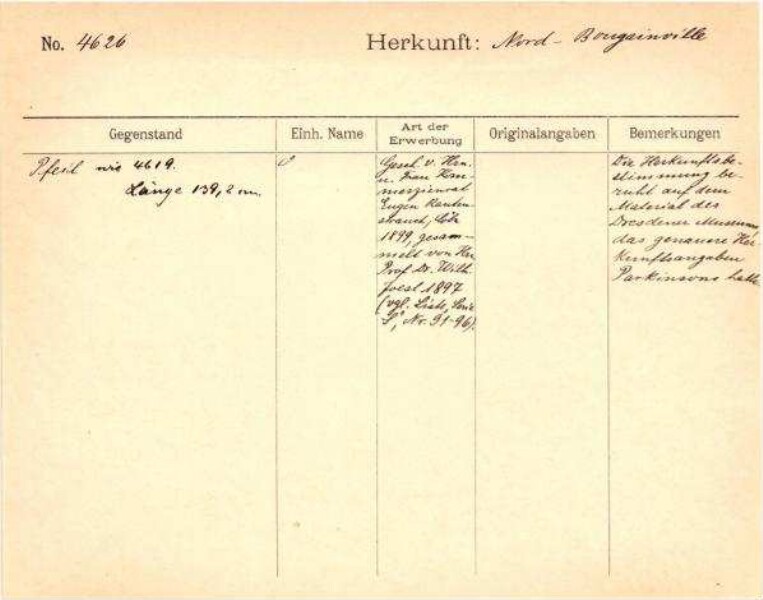 No. 4626
Herkunft: Nord-Bougainville
Gegenstand
Einh. Name
Art der
Erwerbung
Originalangaben
Bemerkungen
Pfeil wie 4619.
Länge 139,2 cm.
Gesch. v. Hrn.
u. Frau Kom-
merzienrat
Eugen Rauten-
strauch, Cöln
1899, gesam-
melt von Hrn.
Prof. Dr. Wilh.
Joest 1897
(vgl. Liste, Serie
Nr. 91-96).
Die Herkunftsbe-
stimmung be-
ruht auf dem
Material des
Dresdener Museums,
das genauere Her-
kunftsangaben
Parkinsons hatte.